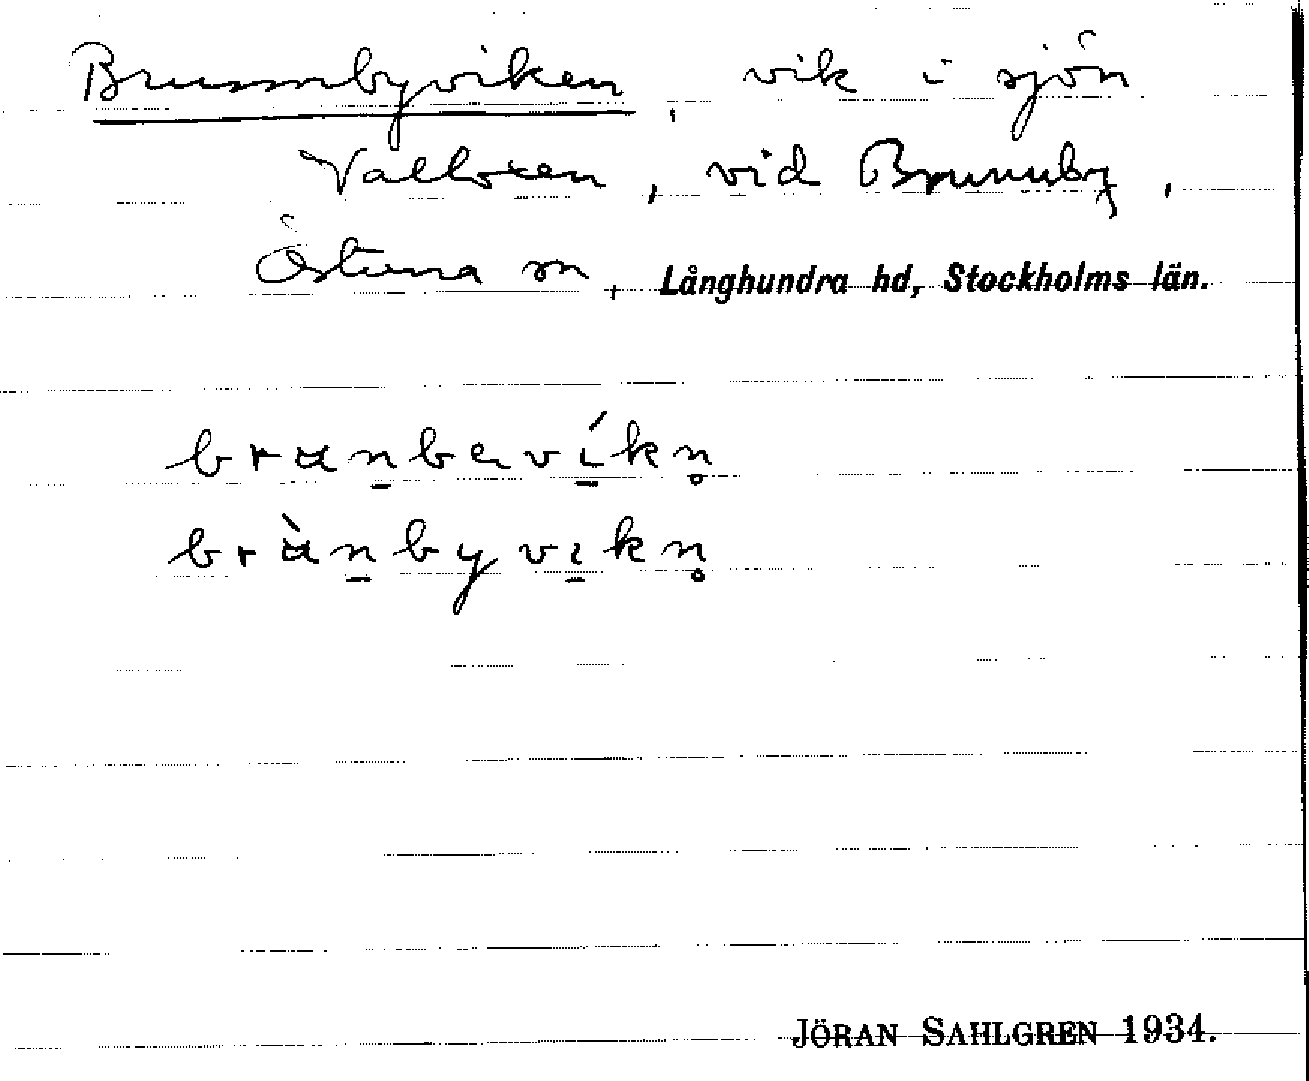 Brunnbyviken, vik i sjön
Valloxen, vid Brunnby,
Östuna sn, Långhundra hd, Stockholms län.
brunbavíkn̥
brùnbyvikn̥
JÖRAN SAHLGREN 1934.